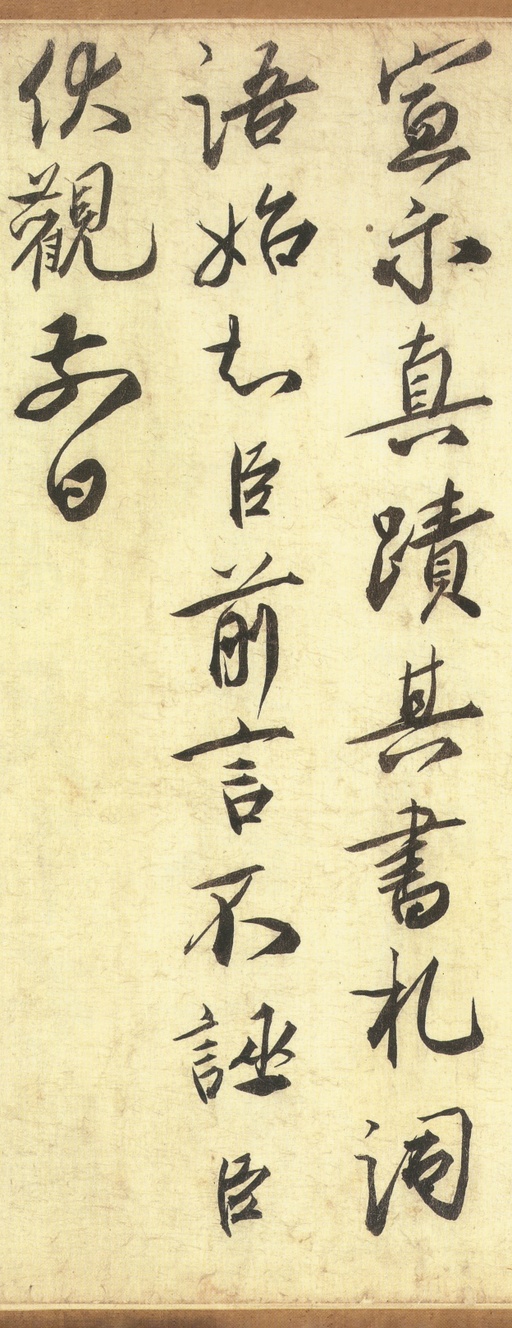 宣示真蹟其書札調
語始知臣前言不誣臣
伏觀日